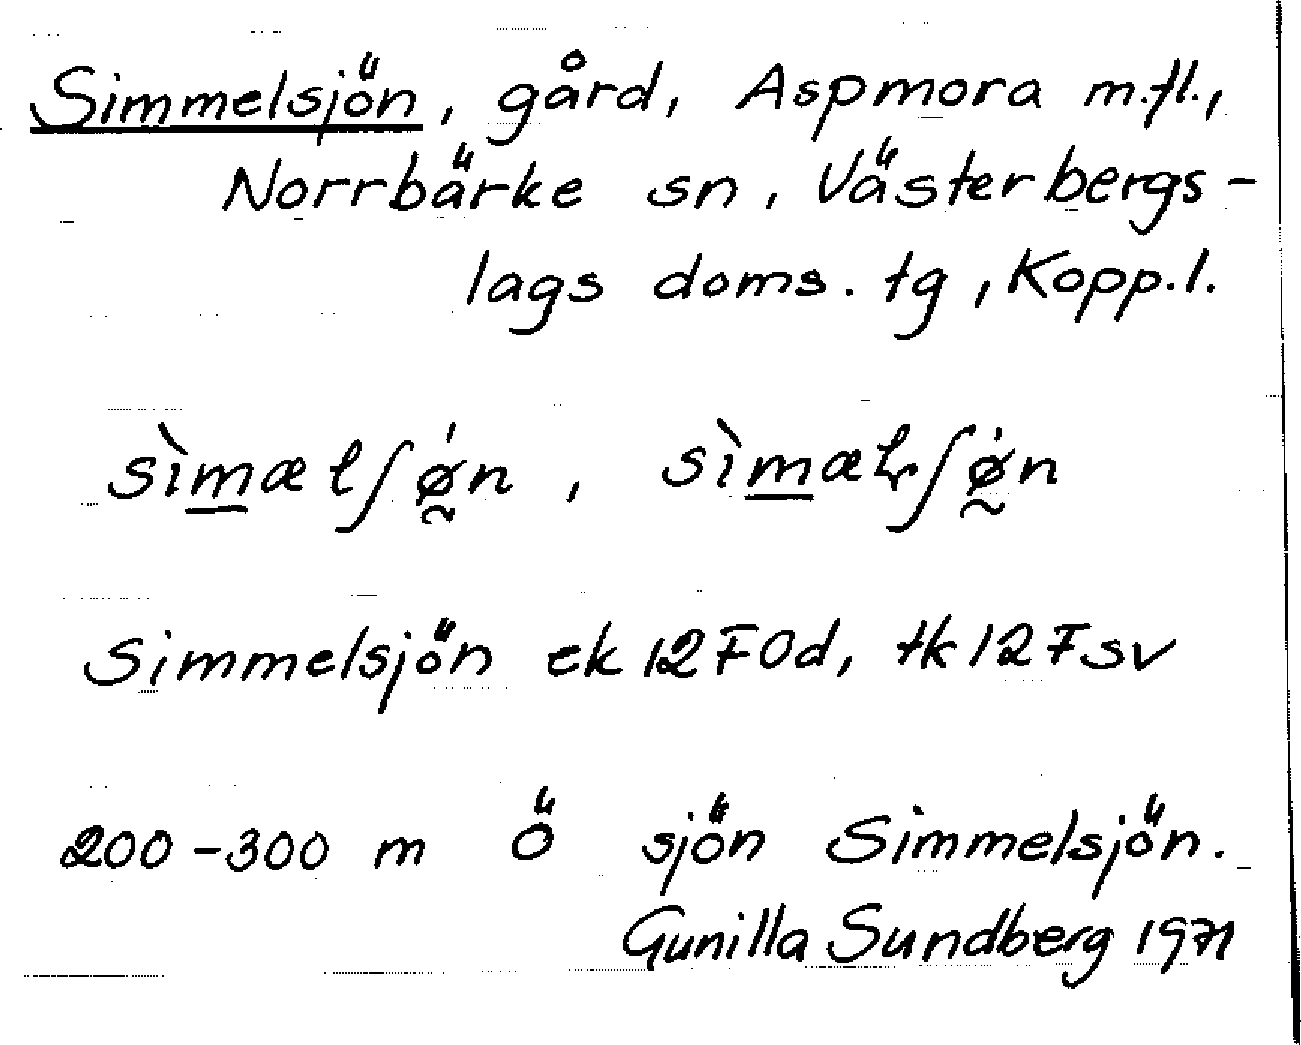 Simmelsjön, gård, Aspmora m.fl.,
Norrbärke sn, Västerbergs-
lags doms. tg, Kopp.l.
Simmelsjön ek 12F0d, tk 12Fsv
200-300 m Ö sjön Simmelsjön.
Gunilla Sundberg 1971